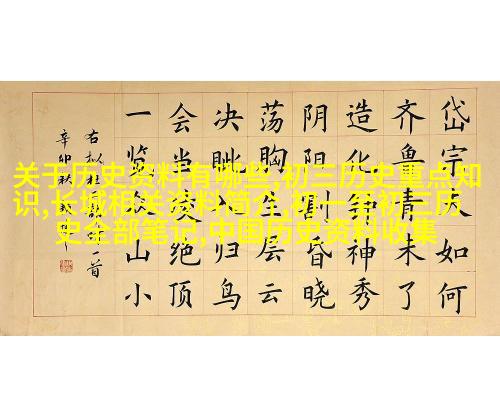 关于历史资料有哪些,初三历史重点知
识,长城相关资料简介,初一至初三历
史全部笔记,中国历史资料收集
岱宗夫如何
齐鲁青未了
造化钟神秀
阴阳割昏晓
荡胸生层云
决眦入归鸟
会当凌绝顶
一览众山小
右 一首
辛卯秋